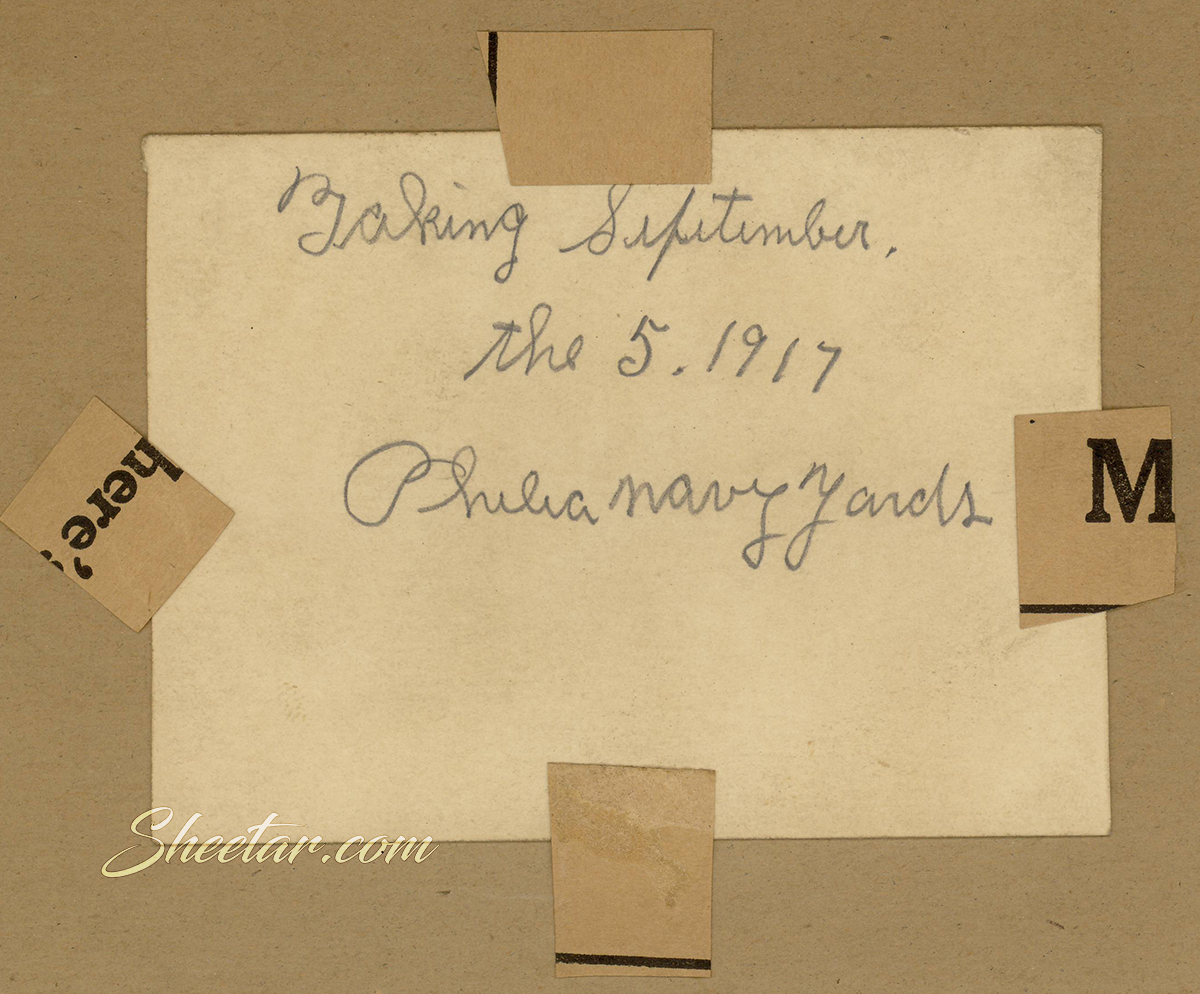 Taking September.
the 5. 1917
Philia navy Yards
here's
M
Sheetar.com